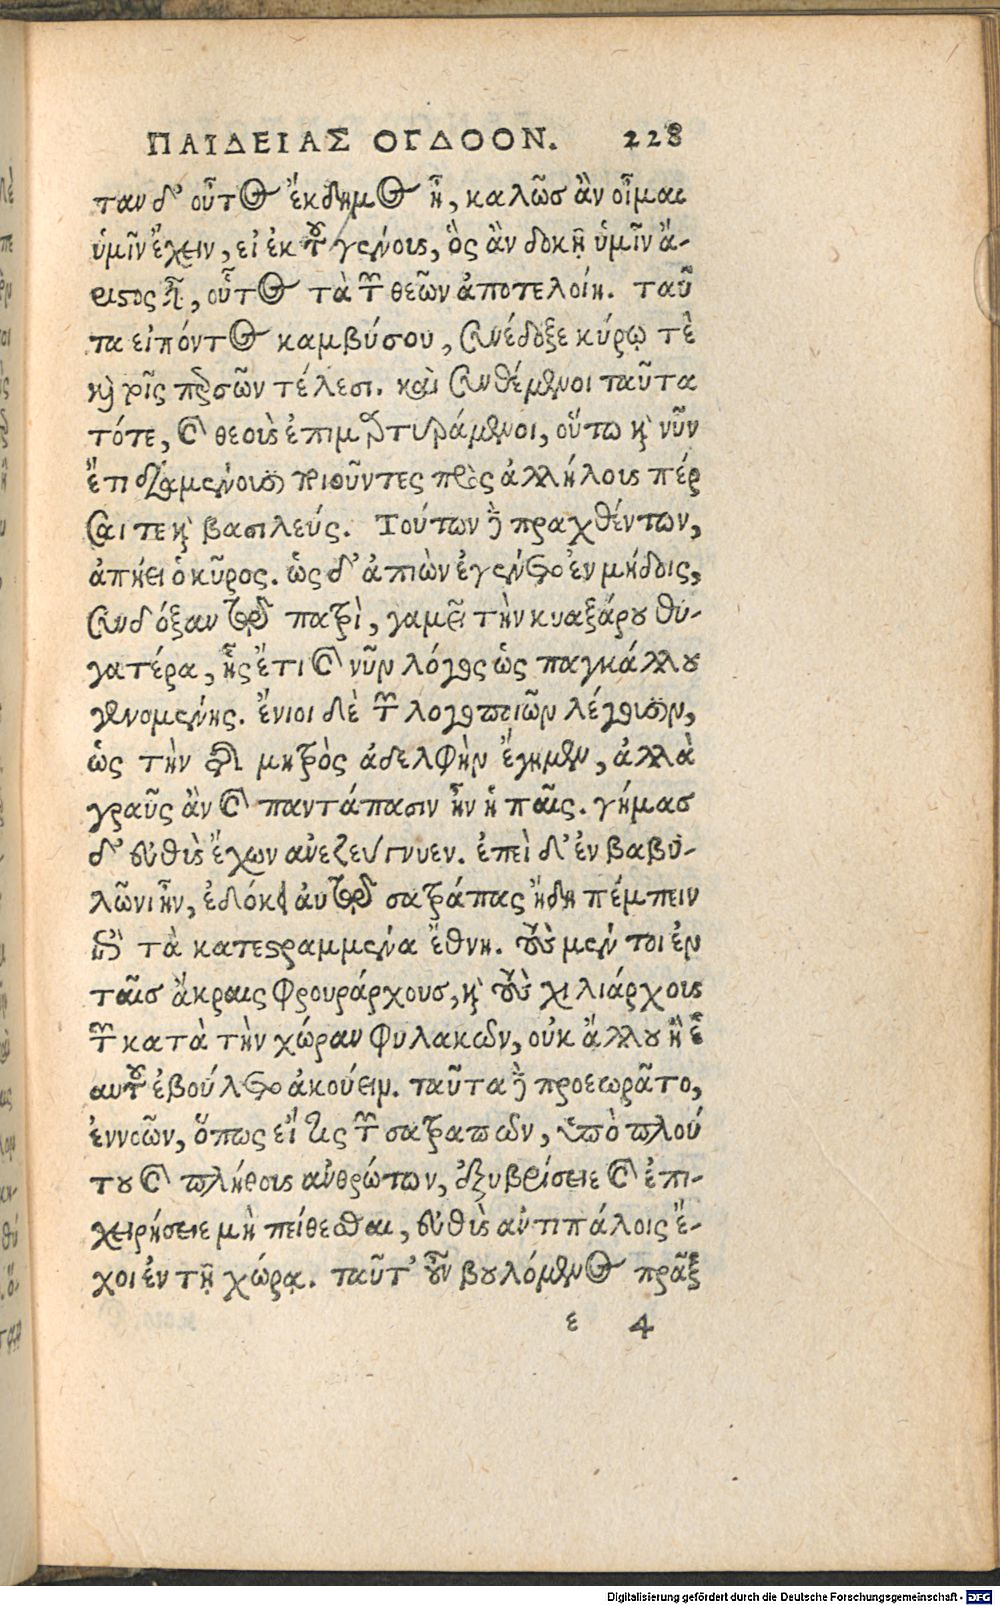 ΠΑΙΔΕΙΑΣ ΟΓΔΟΟΝ. 228
ταν δ' οὗτος ἔκδημος ᾖ, καλῶσ ἂν οἶμαι
ὑμῖν ἔχειν, εἰ ἐκ τοῦ γένους, ὃς ἂν δοκῇ ὑμῖν ἄ-
ριστος εἶ), οὗτος τὰ τῶν θεῶν ἀποτελοίη. ταῦ
τα εἰπόντος καμβύσου, συνέδοξε κύρῳ τὲ
καὶ τοῖς περσῶν τέλεσι. καὶ συνθέμενοι ταῦτα
τότε, καὶ θεοὺς ἐπιμαρτυράμενοι, οὕτω καὶ νῦν
ἔτι διαμένουσι ποιοῦντες πρὸς ἀλλήλους πέρ
σαι τε καὶ βασιλεύς. Τούτων δὲ πραχθέντων,
ἀπῄει ὁ κῦρος. ὡς δ' ἀπιὼν ἐγένετο ἐν μήδοις,
συνδόξαν τῷ πατρὶ, γαμεῖ τὴν κυαξάρου θυ-
γατέρα, ἧς ἔτι καὶ νῦν λόγος ὡς παγκάλλου
γενομένης. ἔνιοι δὲ τῶν λογοποιῶν λέγουσιν,
ὡς τὴν τῆς μητρὸς ἀδελφὴν ἔγημεν, ἀλλὰ
γραῦς ἂν καὶ παντάπασιν ἦν ἡ παῖς. γήμασ
δ' εὐθὺς ἔχων ἀνεζεύγνυεν. ἐπεὶ δ' ἐν βαβυ-
λῶνι ἦν, ἐδόκει αὐτῷ σατράπας ἤδη πέμπειν
ἐπὶ τὰ κατεστραμμένα ἔθνη. τοὺς μέν τοι ἐν
ταῖσ ἄκραις φρουράρχουσ, καὶ τοὺς χιλιάρχους
τῶν κατὰ τὴν χώραν φυλακῶν, οὐκ ἄλλου ἢ ἑ
αυτοῦ ἐβούλετο ἀκούειν. ταῦτα δὲ προεωρᾶτο,
ἐννοῶν, ὅπως εἴ τις τῶν σατραπῶν, ὑπὸ πλού
του καὶ πλήθους ἀνθρώπων, ἐξυβρίσειε καὶ ἐπι-
χειρήσειε μὴ πείθεσθαι, εὐθὺς ἀντιπάλοις ἔ-
χοι ἐν τῇ χώρᾳ. ταῦτ' οὖν βουλόμενος πρᾶξ
ε 4
Digitalisierung gefördert durch die Deutsche Forschungsgemeinschaft - DFG